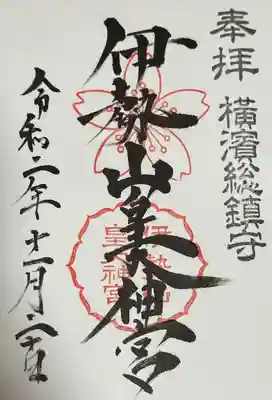 奉拝 横濱総鎮守
伊勢山皇大神宮
伊勢山
皇大神宮
令和二年十一月